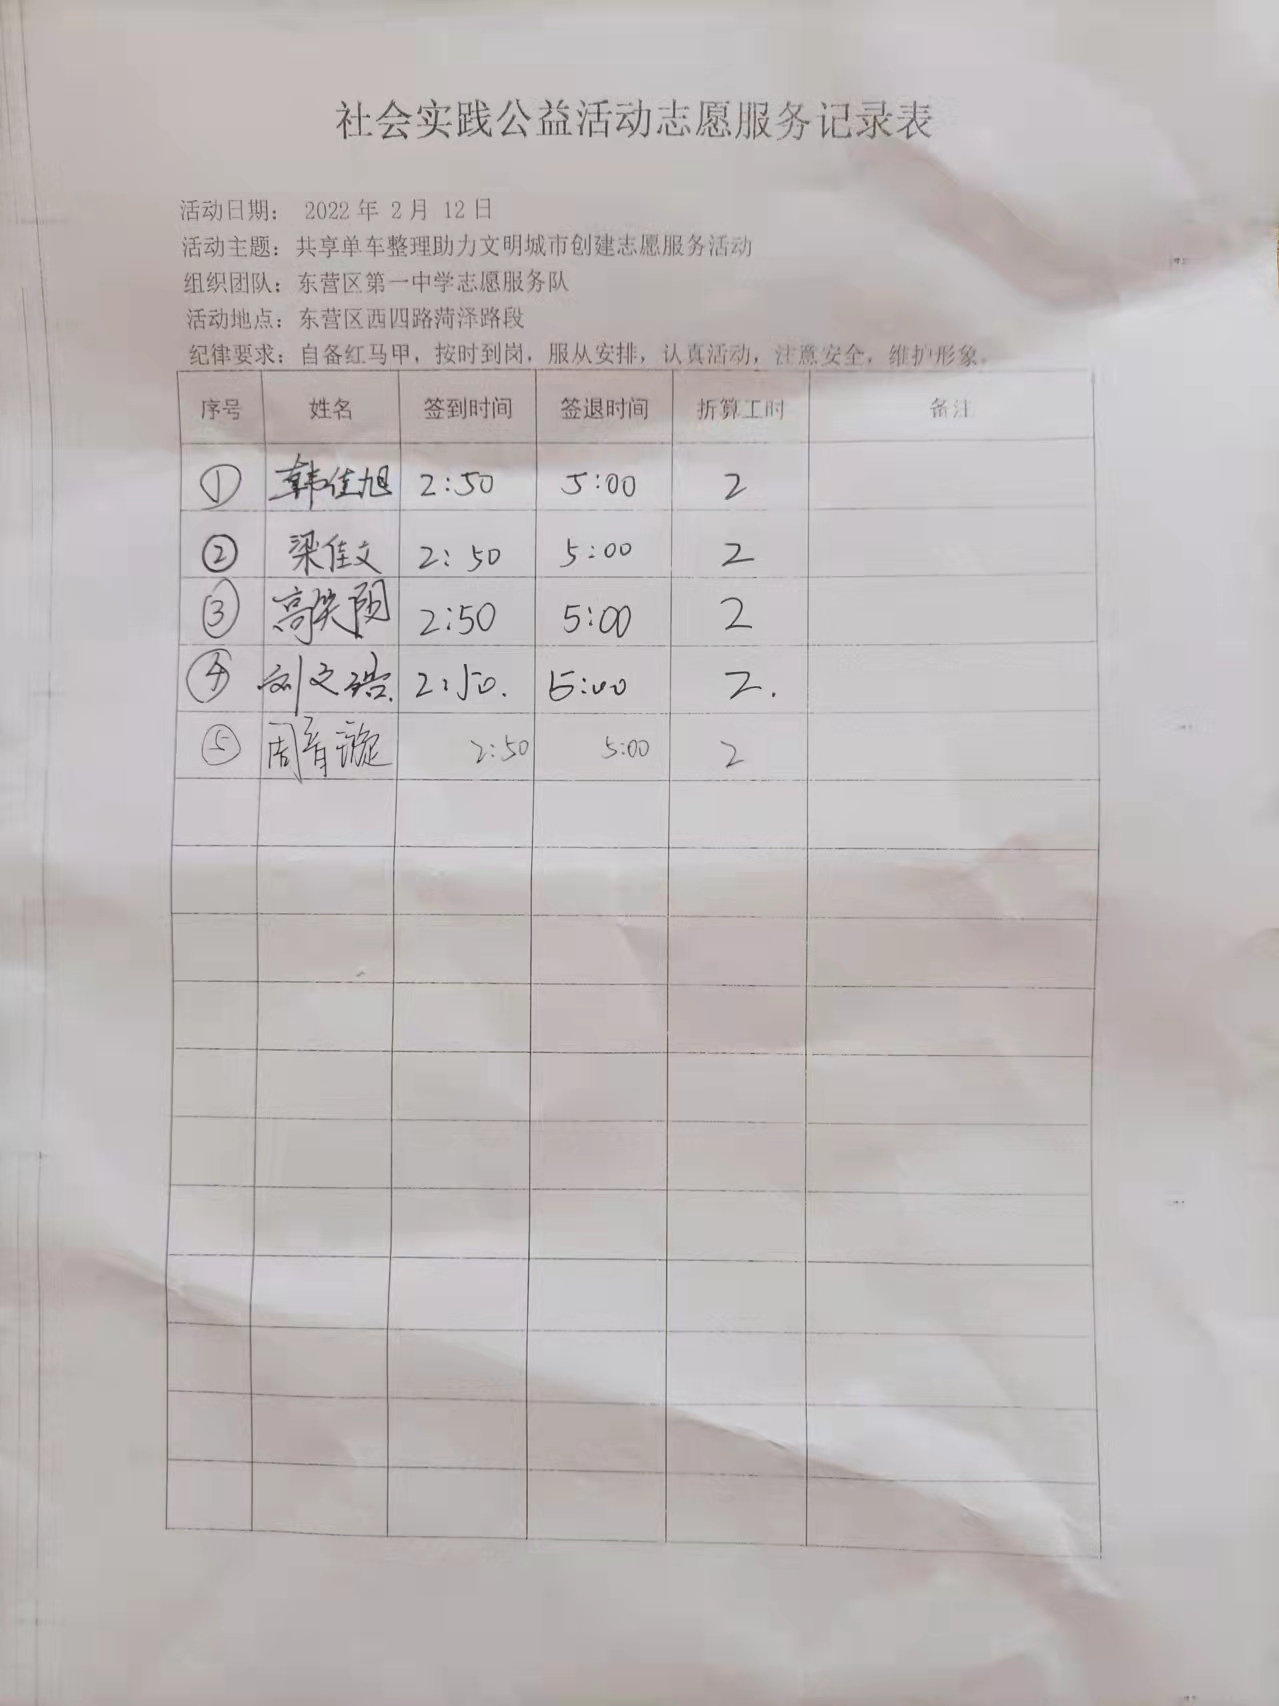 社会实践公益活动志愿服务记录表
活动日期： 2022 年 2 月 12 日
活动主题：共享单车整理助力文明城市创建志愿服务活动
组织团队：东营区第一中学志愿服务队
活动地点：东营区西四路菏泽路段
纪律要求：自备红马甲，按时到岗，服从安排，认真活动，注意安全，维护形象。
序号 姓名 签到时间 签退时间 折算工时 备注
① 韩佳旭 2:50 5:00 2
② 梁佳文 2:50 5:00 2
③ 高笑颜 2:50 5:00 2
④ 刘文 2:50. 5:00 2.
⑤ 周 2:50 5:00 2